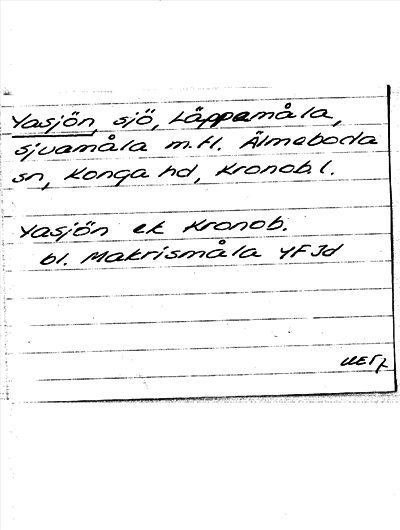 Yasjön, sjö, Läppamåla,
Sjuamåla m.fl. Älmeboda
sn, Konga hd, Kronob. l.
Yasjön ek Kronob.
bl. Makrismåla YFJd